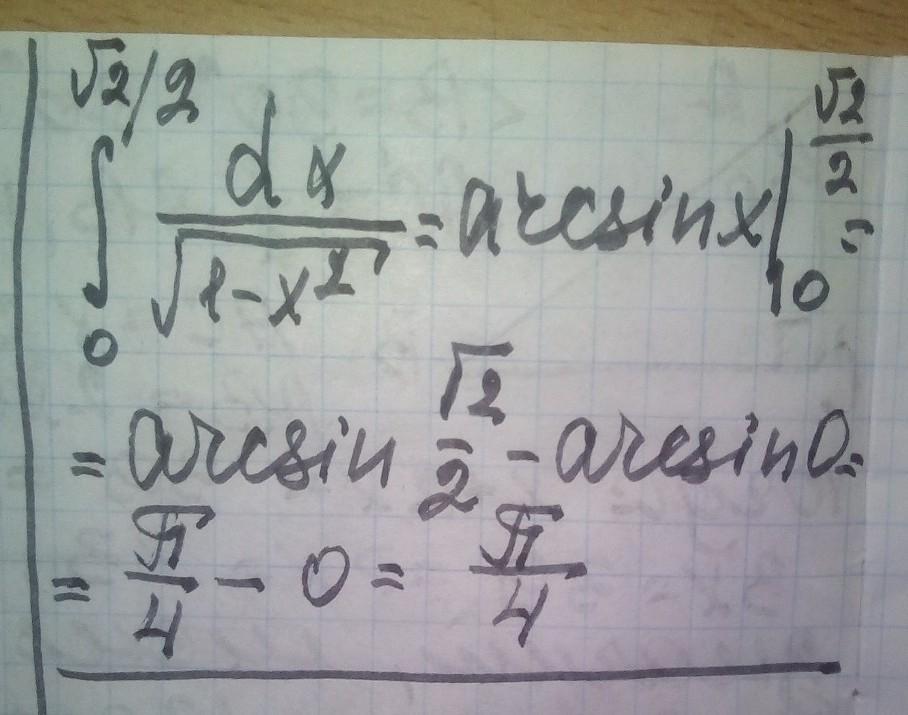 ∫₀^{√2/2} dx/√(1-x²) = arcsinx|₀^{√2/2} =
= arcsin √2/2 - arcsin0 =
= π/4 - 0 = π/4